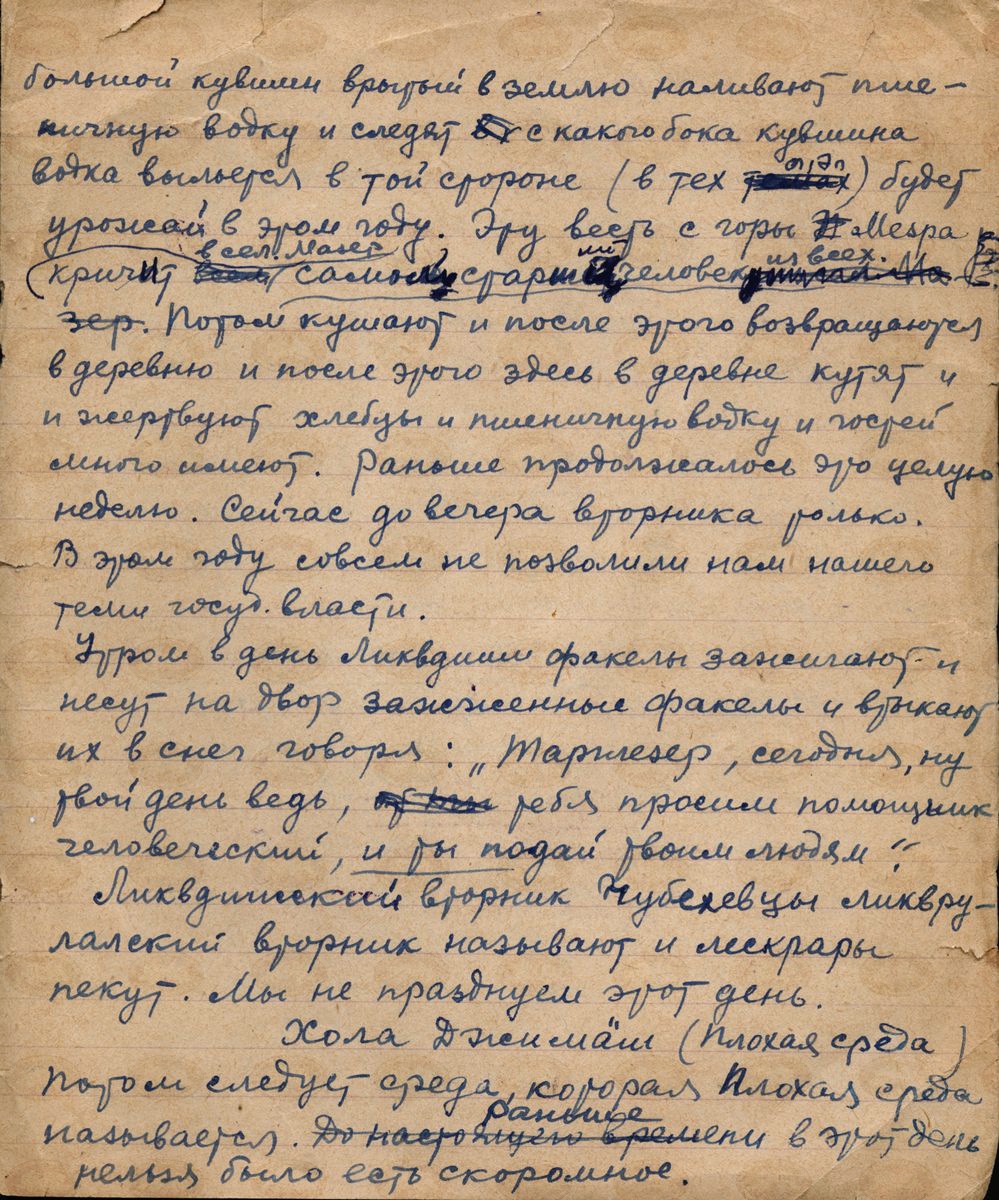 большой кувшин врытый в землю наливают пше-
ничную водку и следят с какого бока кувшина
водка выльется в той стороне (в тех
будет
урожай в этом году. Эту весть с горы Мезра
всел. Мазер
из всех.
кричит всем самому старший человек Ма-
зер. Потом кушают и после этого возвращаются
в деревню и после этого здесь в деревне кутят и
и жертвуют хлебцы и пшеничную водку и гостей
много имеют. Раньше продолжалось это целую
неделю. Сейчас до вечера вторника только.
В этом году совсем не позволили нам нашего
теми госуд. власти.
Утром в день Ликвдиши факелы зажигают и
несут на двор зажженные факелы и втыкают
их в снег говоря: „Тарглезер, сегодня, ну
твой день ведь, тебя просим помощник
человеческий, и ты подай твоим людям“.
Ликвдишский вторник Чубехевцы ликвру-
лалский вторник называют и лескрары
пекут. Мы не празднуем этот день.
Хола Джимäш (Плохая среда)
Потом следует среда, которая Плохая среда
раньше
называется. До настоящего времени в этот день
нельзя было есть скоромное.